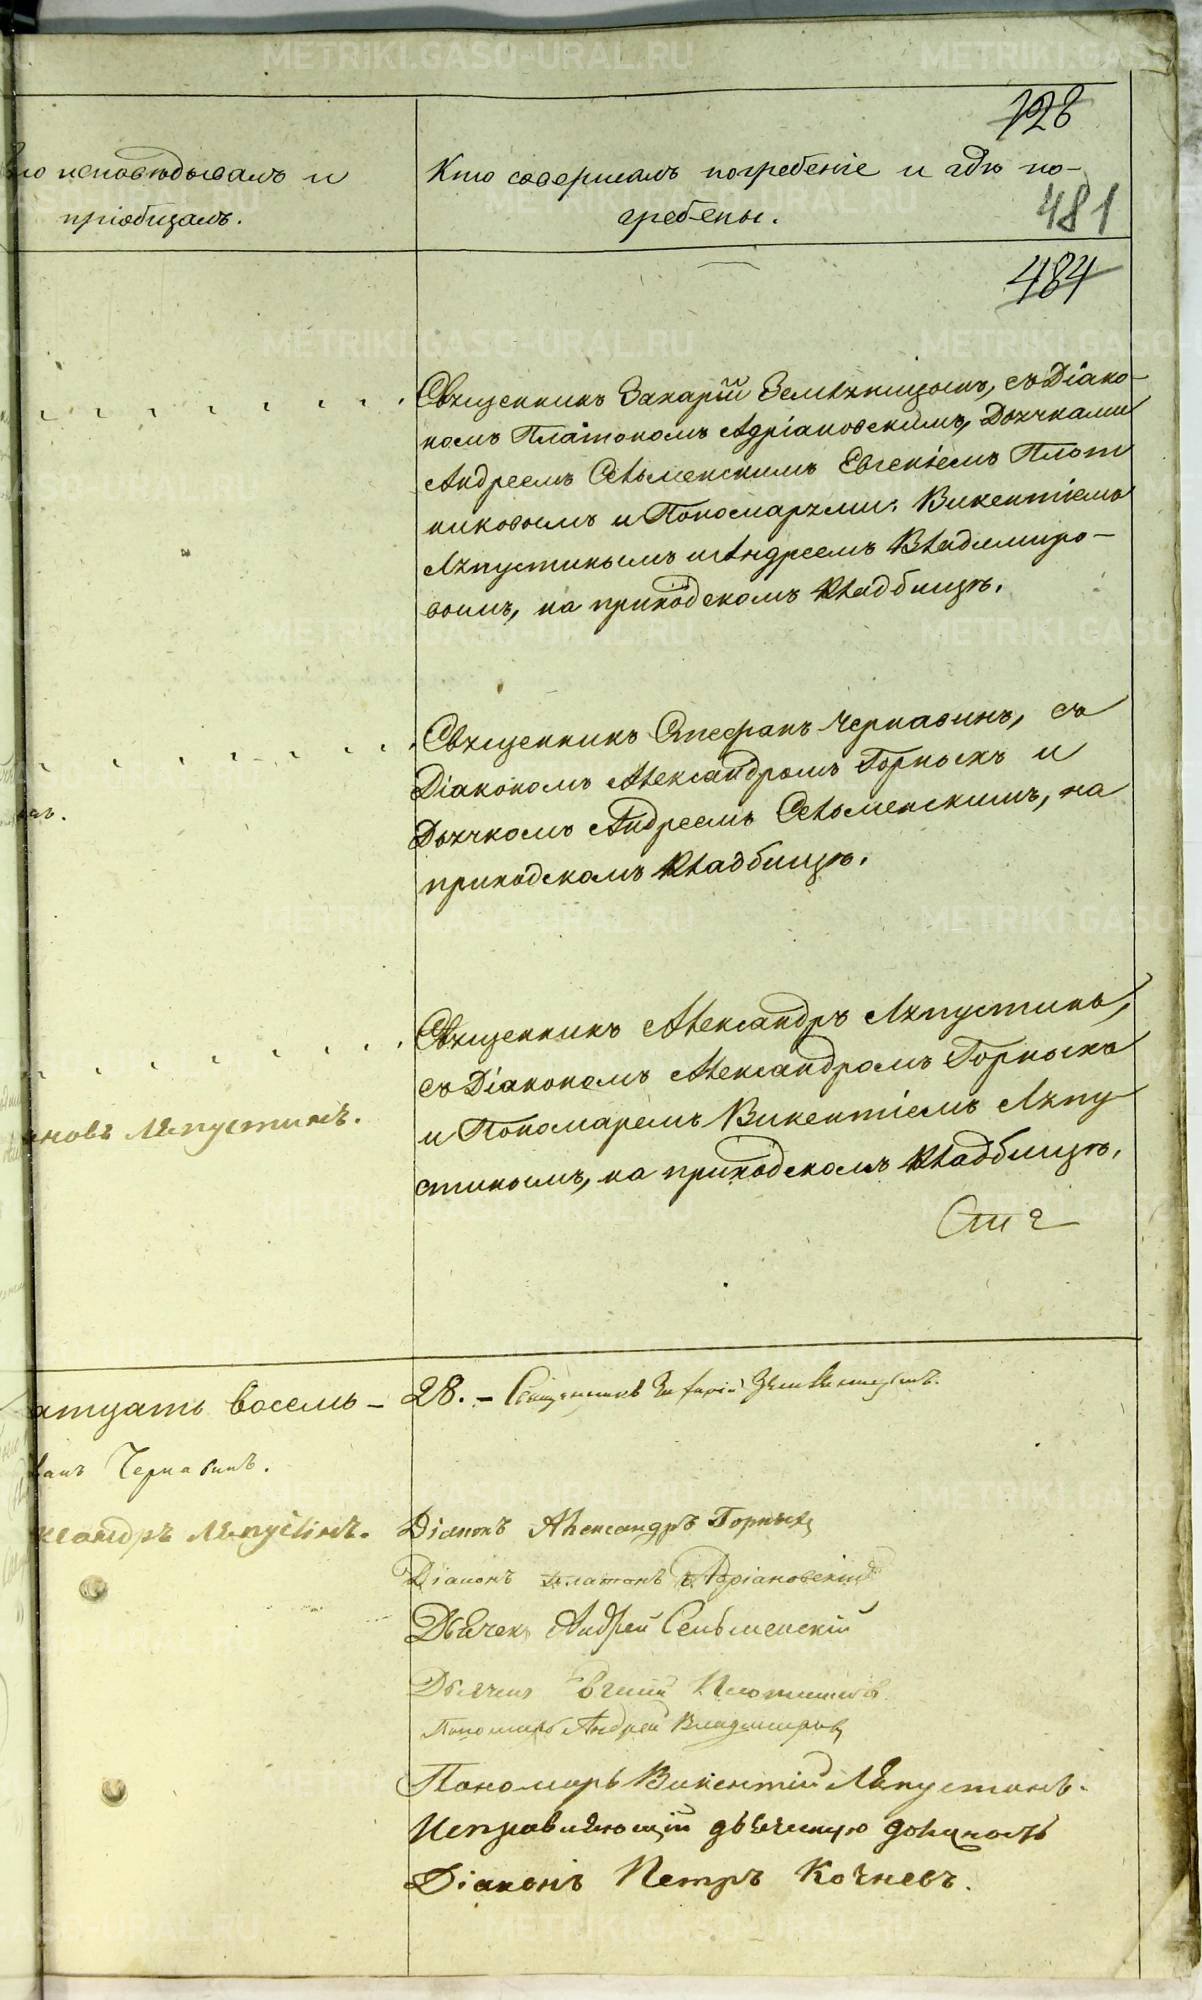 128
Кто исповѣдывалъ и
пріобщалъ.
Кто совершалъ погребеніе и гдѣ по-
гребены.
481
484
Священникъ Захарій Земляницынъ, съ Діако-
номъ Платономъ Адріановскимъ, Дьячками
Андреемъ Сельменскимъ Евгеніемъ Плот
никовымъ и Пономарями: Викентіемъ
Ляпустинымъ и Андреемъ Владиміро-
вымъ, на приходскомъ кладбищѣ.
Священникъ Стефанъ Чернавинъ, съ
Діакономъ Александромъ Горныхъ и
Дьячкомъ Андреемъ Сельменскимъ, на
приходскомъ кладбищѣ.
Священникъ Александръ Ляпустинъ,
съ Діакономъ Александромъ Горныхъ
и Пономаремъ Викентіемъ Ляпу
стинымъ, на приходскомъ кладбищѣ.
новъ Ляпустинъ.
атцать восемь – 28. – Священникъ Захарій Земляницынъ.
ванъ Чернавинъ.
ксандръ Ляпустинъ.
Діаконъ Александръ Горныхъ
Діаконъ Платонъ Адріановскій
Дьячекъ Андрей Сельменскій
Дьячекъ Евгеній Плотниковъ
Пономарь Андрей Владиміровъ
Пономарь Викентій Ляпустинъ.
Исправляющій дьяческую должность
Діаконъ Петръ Кочневъ.
METRIKI.GASO-URAL.RU